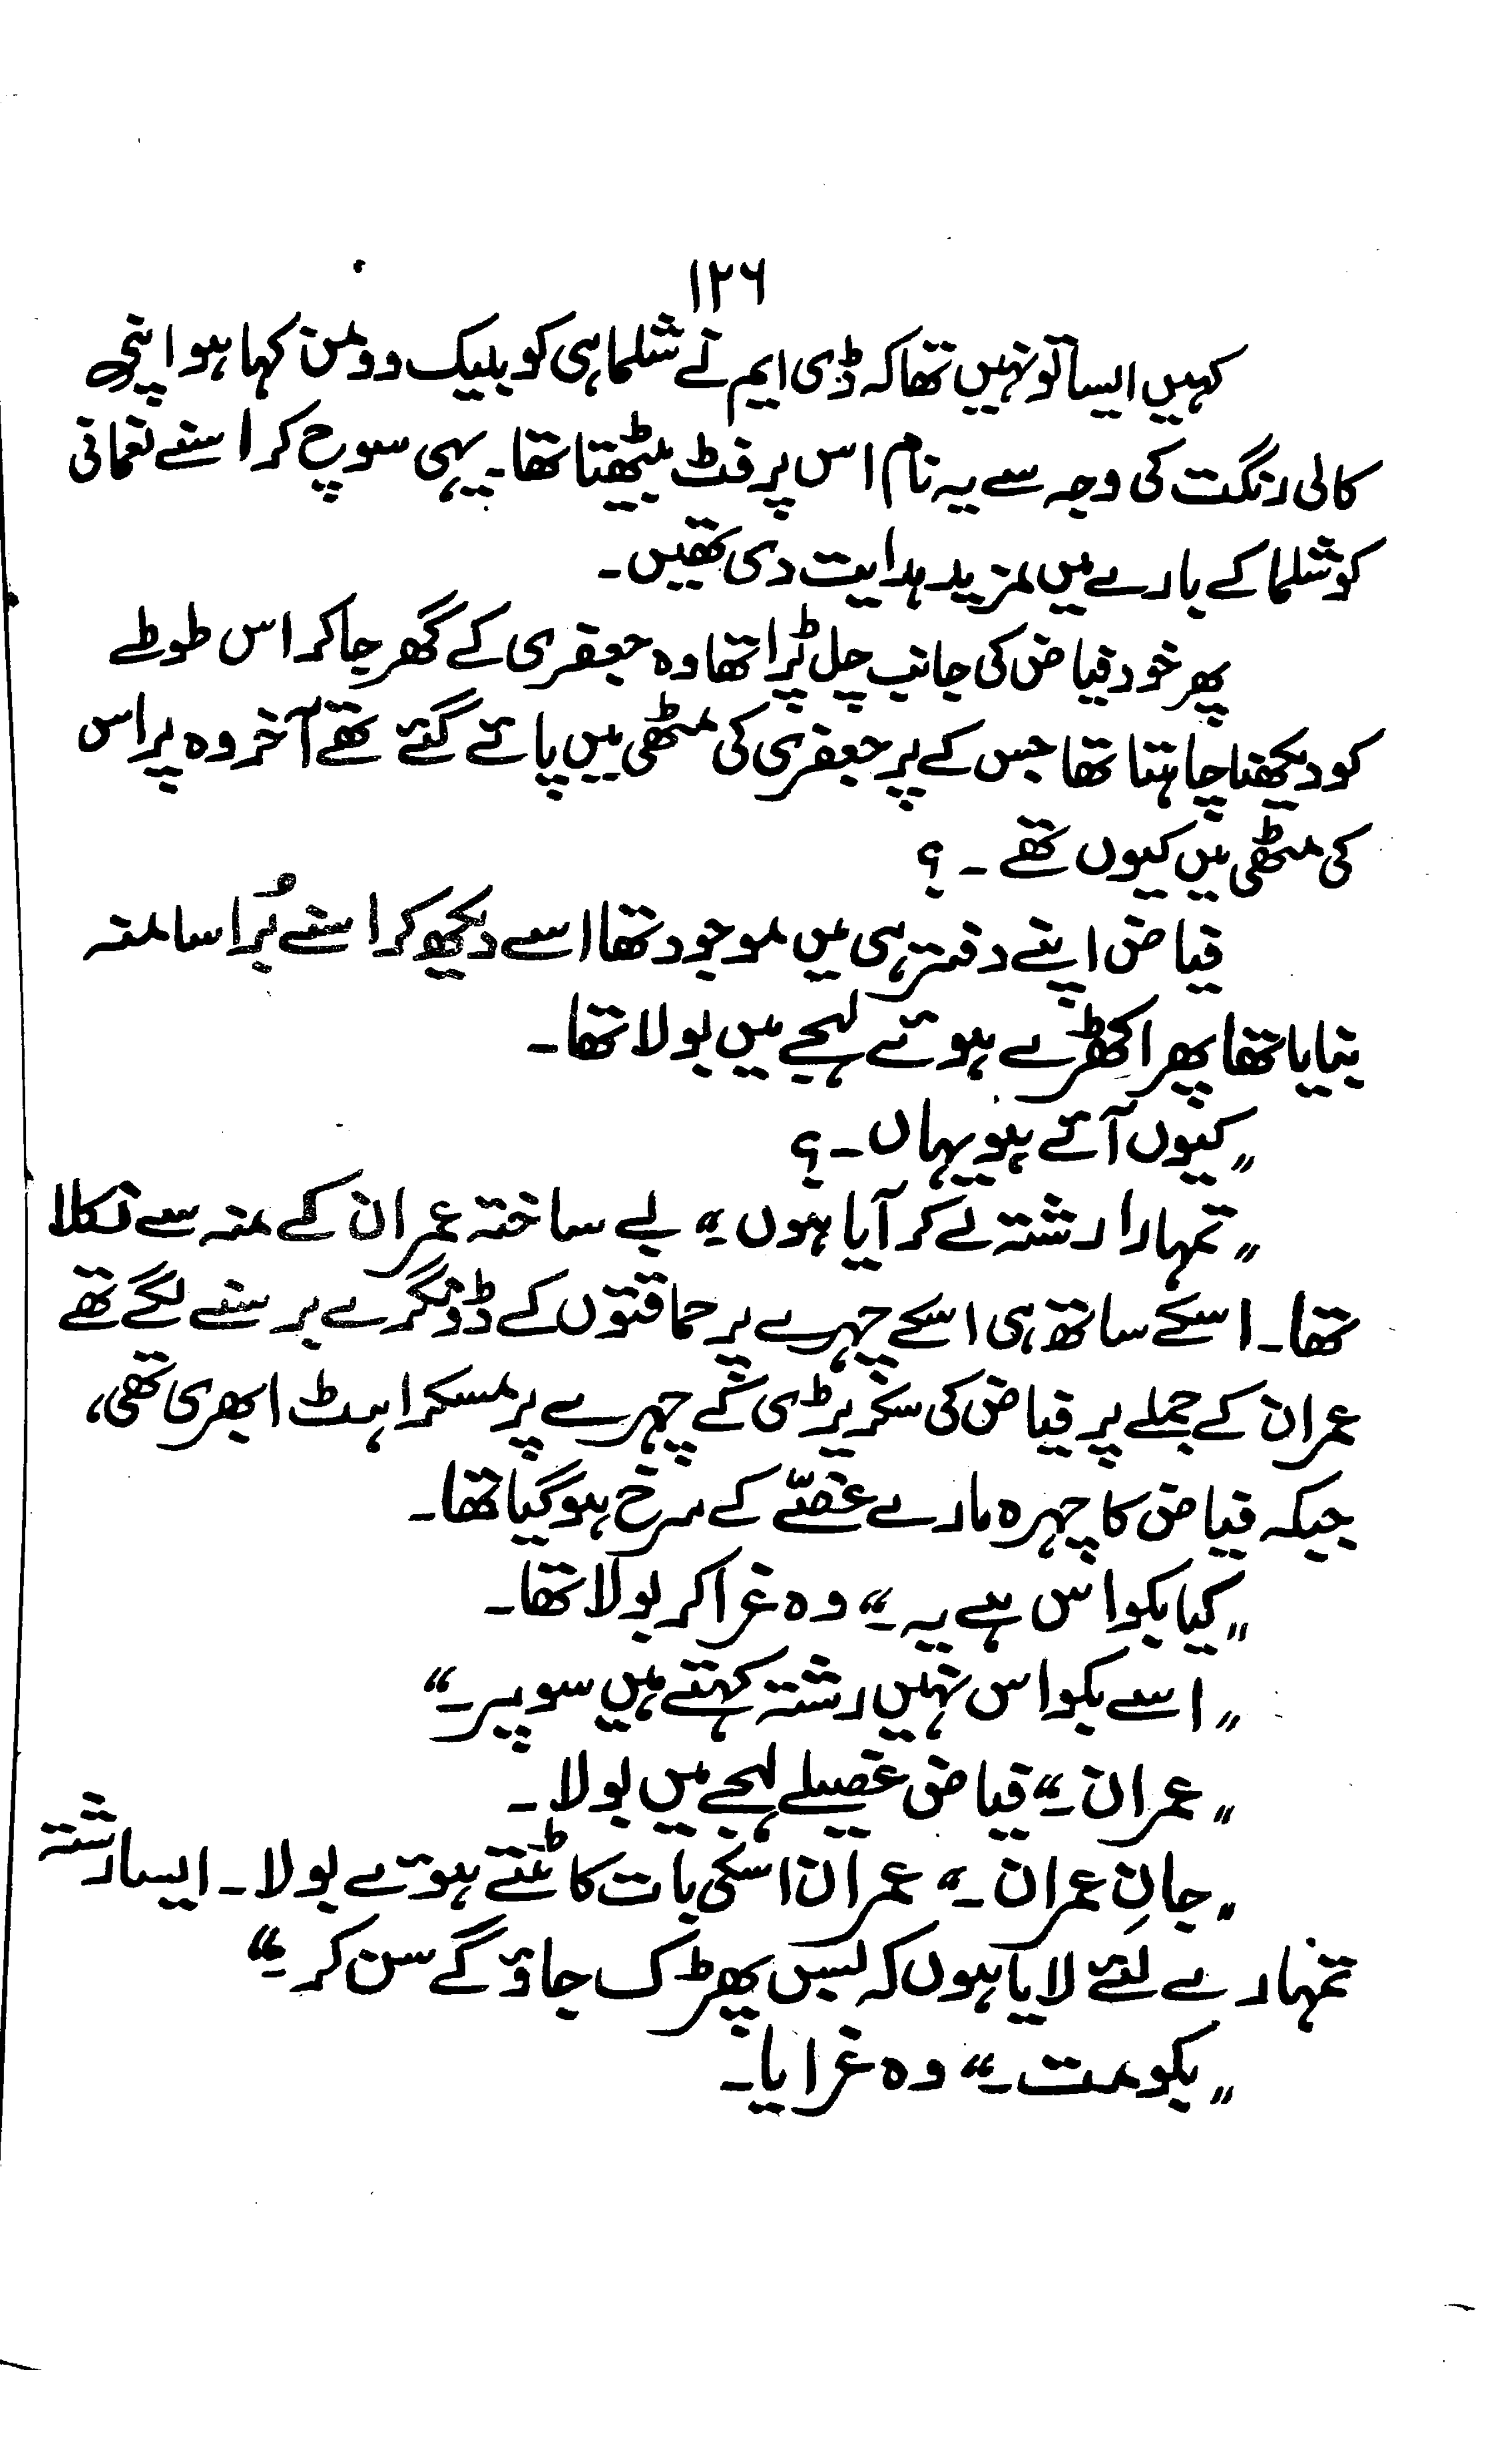 ۱۲۶
کہیں ایسا تو نہیں تھا کہ ڈی ایم نے شلما ہی کو بلیک وومن کہا ہو اپنی
کالی رنگت کی وجہ سے یہ نام اس پر فٹ بیٹھتا تھا۔ یہی سوچ کر اسنے نعمانی
کو شلما کے بارے میں مزید ہدایت دی تھیں۔
پھر خود فیاض کی جانب چل پڑا تھا وہ جعفری کے گھر جا کر اس طوطے
کو دیکھنا چاہتا تھا جس کے پر جعفری کی مٹھی میں پائے گئے تھے آخر وہ پر اس
کی مٹھی میں کیوں تھے ۔ ؟
فیاض اپنے دفتر ہی میں موجود تھا اسے دیکھ کر اسنے بُرا سا منہ
بنایا تھا پھر اکھڑے ہوئے لہجے میں بولا تھا۔
"کیوں آئے ہو یہاں ۔ ؟
"تمہارا رشتہ لے کر آیا ہوں۔" بے ساختہ عمران کے منہ سے نکلا
تھا۔ اسکے ساتھ ہی اسکے چہرے پر حماقتوں کے ڈونگرے برسنے لگے تھے
عمران کے جملے پر فیاض کی سکریٹری کے چہرے پر مسکراہٹ ابھری تھی،
جبکہ فیاض کا چہرہ مارے غصّے کے سرخ ہو گیا تھا۔
"کیا بکواس ہے یہ۔" وہ غرا کر بولا تھا۔
"اسے بکواس نہیں رشتہ کہتے ہیں سوپر۔"
"عمران۔" فیاض غصیلے لہجے میں بولا۔
"جانِ عمران۔" عمران اسکی بات کاٹتے ہوئے بولا۔ ایسا رشتہ
تمہارے لئے لایا ہوں کہ بس پھڑک جاؤ گے سن کر۔"
"بکو مت۔" وہ غرایا۔